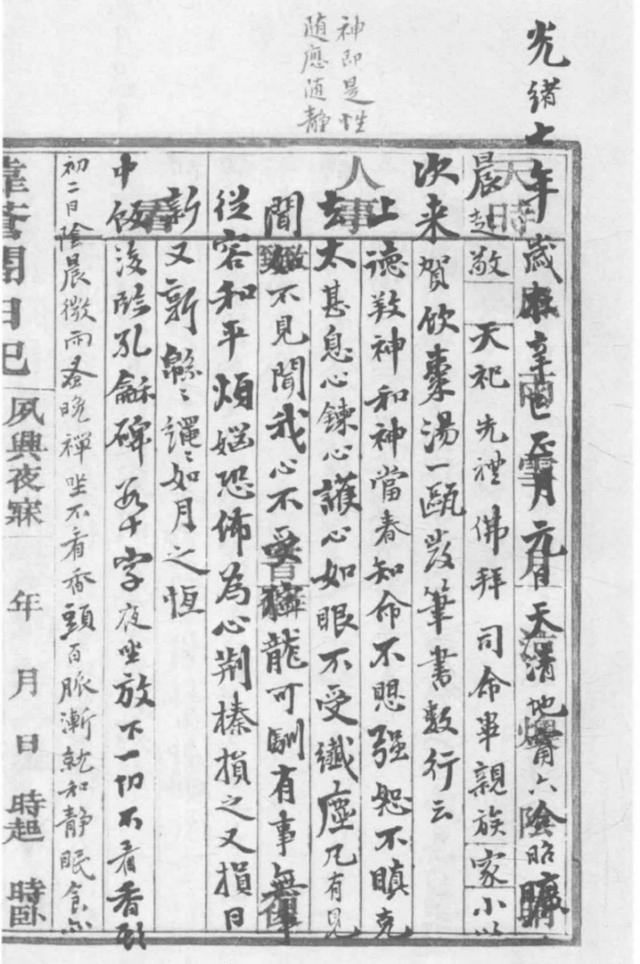 神即是性
随應随静
光緒七年歲在辛巳正月元日天清地甯六陰昭曠
晨起敬天祀先禮佛拜司命畢親族家小以
次来賀飲棗湯一甌发筆書数行云
上德敦神和神當春知命不思强恕不瞋克
去太甚息心鍊心護心如眼不受纖塵凡有見
聞如不見聞我心不受獰龍可馴有事無事
從容和平煩惱恐怖為心荆榛損之又損日
新又新緜緜繩繩如月之恆
中飯後臨孔龢碑若干字夜坐放下一切不看香頭
初二日陰晨微雨蚤晚禪坐不看香頭百脈漸就和静眠食亦
日記
夙興夜寐 年 月 日 時起 時卧